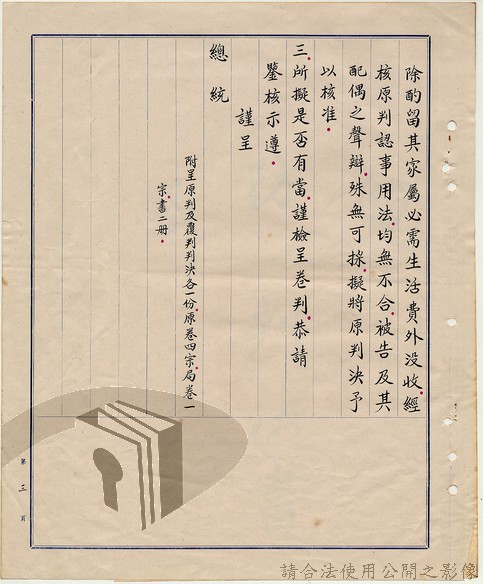 除酌留其家屬必需生活費外没收。經
核原判認事用法，均無不合。被告及其
配偶之聲辯，殊無可採，擬將原判決予
以核准。
三、所擬是否有當，謹檢呈卷判，恭請
鑒核示遵。
謹呈
總統
附呈原判及覆判判決各一份，原卷四宗，局卷一
宗，書二册。
第三頁
請合法使用公開之影像